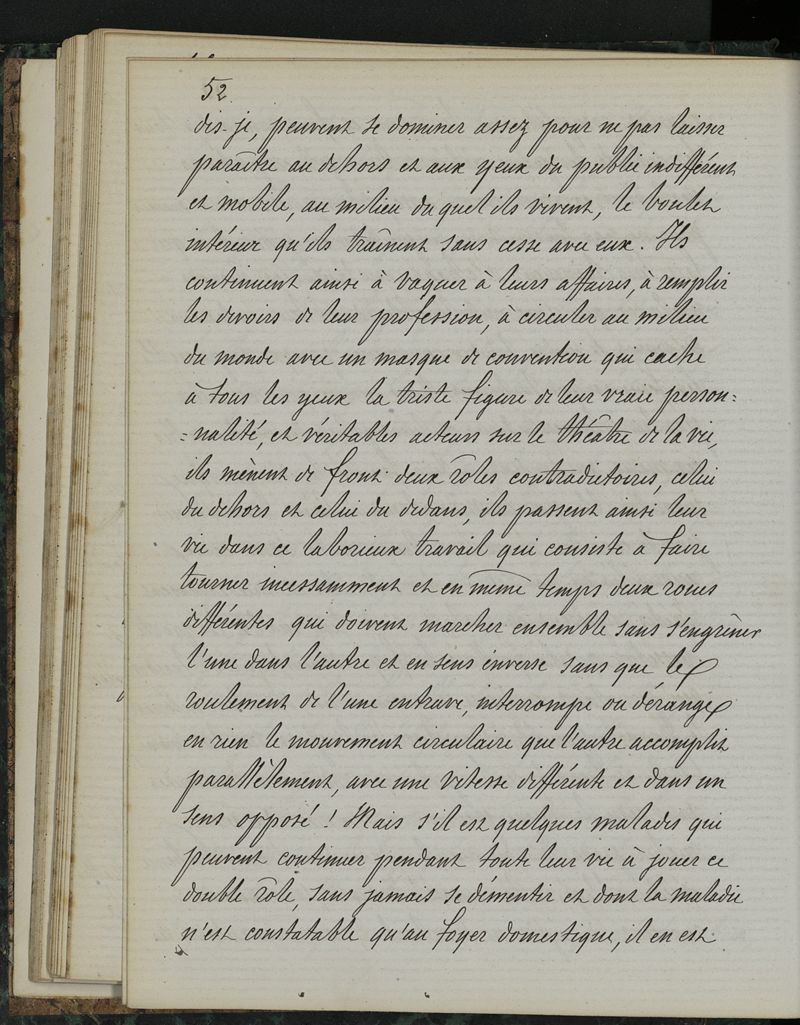 52.
dis-je, peuvent se dominer assez pour ne pas laisser
paraître au dehors et aux yeux du public indifférent
et mobile, au milieu duquel ils vivent, le boulet
intérieur qu'ils traînent sans cesse avec eux. Ils
continuent ainsi à vaquer à leurs affaires, à remplir
les devoirs de leur profession, à circuler au milieu
du monde avec un masque de convention qui cache
à tous les yeux la triste figure de leur vraie person=
=nalité, et véritables acteurs sur le théâtre de la vie,
ils mènent de front deux rôles contradictoires, celui
du dehors et celui du dedans, ils passent ainsi leur
vie dans ce laborieux travail qui consiste à faire
tourner incessamment et en même temps deux roues
différentes qui doivent marcher ensemble sans s'engrèner
l'une dans l'autre et en sens inverse sans que le
roulement de l'une entrave, interrompe ou dérange
en rien le mouvement circulaire que l'autre accomplit
parallèlement, avec une vitesse différente et dans un
sens opposé ! Mais s'il est quelques malades qui
peuvent continuer pendant toute leur vie à jouer ce
double rôle, sans jamais se démentir et dont la maladie
n'est constatable qu'au foyer domestique, il en est